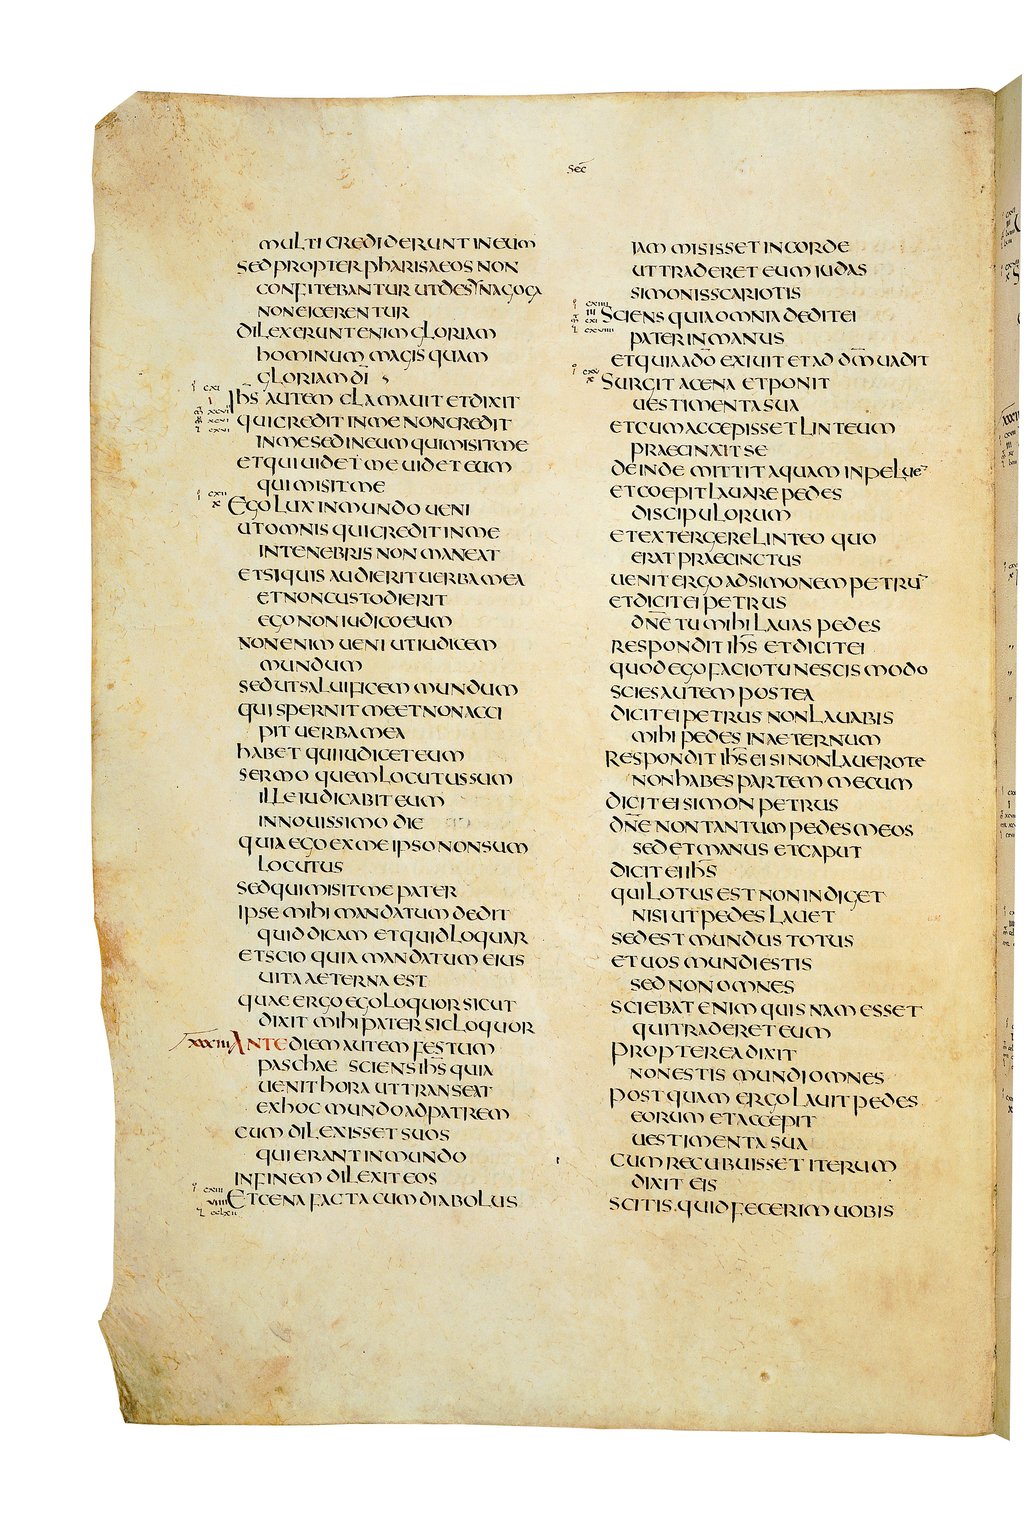 Sec̄
MULTI CREDIDERUNT IN EUM
SED PROPTER PHARISAEOS NON
CONFITEBANTUR UT DE SȲNAGOGA
NON EICERENTUR
DILEXERUNT ENIM GLORIAM
HOMINUM MAGIS QUAM
GLORIAM DĪ
IHS̄ AUTEM CLAMAUIT ET DIXIT
QUI CREDIT IN ME NON CREDIT
IN ME SED IN EUM QUI MISIT ME
ET QUI UIDET ME UIDET EUM
QUI MISIT ME
EGO LUX IN MUNDO UENI
UT OMNIS QUI CREDIT IN ME
IN TENEBRIS NON MANEAT
ET SI QUIS AUDIERIT UERBA MEA
ET NON CUSTODIERIT
EGO NON IUDICO EUM
NON ENIM UENI UT IUDICEM
MUNDUM
SED UT SALUIFICEM MUNDUM
QUI SPERNIT ME ET NON ACCI
PIT UERBA MEA
HABET QUI IUDICET EUM
SERMO QUEM LOCUTUS SUM
ILLE IUDICABIT EUM
IN NOUISSIMO DIE
QUIA EGO EX ME IPSO NON SUM
LOCUTUS
SED QUI MISIT ME PATER
IPSE MIHI MANDATUM DEDIT
QUID DICAM ET QUID LOQUAR
ET SCIO QUIA MANDATUM EIUS
UITA AETERNA EST
QUAE ERGO EGO LOQUOR SICUT
DIXIT MIHI PATER SIC LOQUOR
XXXIII ANTE DIEM AUTEM FESTUM
PASCHAE SCIENS IHS̄ QUIA
UENIT HORA UT TRANSEAT
EX HOC MUNDO AD PATREM
CUM DILEXISSET SUOS
QUI ERANT IN MUNDO
IN FINEM DILEXIT EOS
ET CENA FACTA CUM DIABOLUS
IAM MISISSET IN CORDE
UT TRADERET EUM IUDAS
SIMONIS SCARIOTIS
SCIENS QUIA OMNIA DEDIT EI
PATER IN MANUS
ET QUIA A DŌ EXIUIT ET AD DM̄ UADIT
SURGIT A CENA ET PONIT
UESTIMENTA SUA
ET CUM ACCEPISSET LINTEUM
PRAECINXIT SE
DEINDE MITTIT AQUAM IN PELUE̅
ET COEPIT LAUARE PEDES
DISCIPULORUM
ET EXTERGERE LINTEO QUO
ERAT PRAECINCTUS
UENIT ERGO AD SIMONEM PETRU̅
ET DICIT EI PETRUS
DN̄E TU MIHI LAUAS PEDES
RESPONDIT IHS̄ ET DICIT EI
QUOD EGO FACIO TU NESCIS MODO
SCIES AUTEM POSTEA
DICIT EI PETRUS NON LAUABIS
MIHI PEDES IN AETERNUM
RESPONDIT IHS̄ EI SI NON LAUERO TE
NON HABES PARTEM MECUM
DICIT EI SIMON PETRUS
DN̄E NON TANTUM PEDES MEOS
SED ET MANUS ET CAPUT
DICIT EI IHS̄
QUI LOTUS EST NON INDIGET
NISI UT PEDES LAUET
SED EST MUNDUS TOTUS
ET UOS MUNDI ESTIS
SED NON OMNES
SCIEBAT ENIM QUISNAM ESSET
QUI TRADERET EUM
PROPTEREA DIXIT
NON ESTIS MUNDI OMNES
POSTQUAM ERGO LAUIT PEDES
EORUM ET ACCEPIT
UESTIMENTA SUA
CUM RECUBUISSET ITERUM
DIXIT EIS
SCITIS QUID FECERIM UOBIS